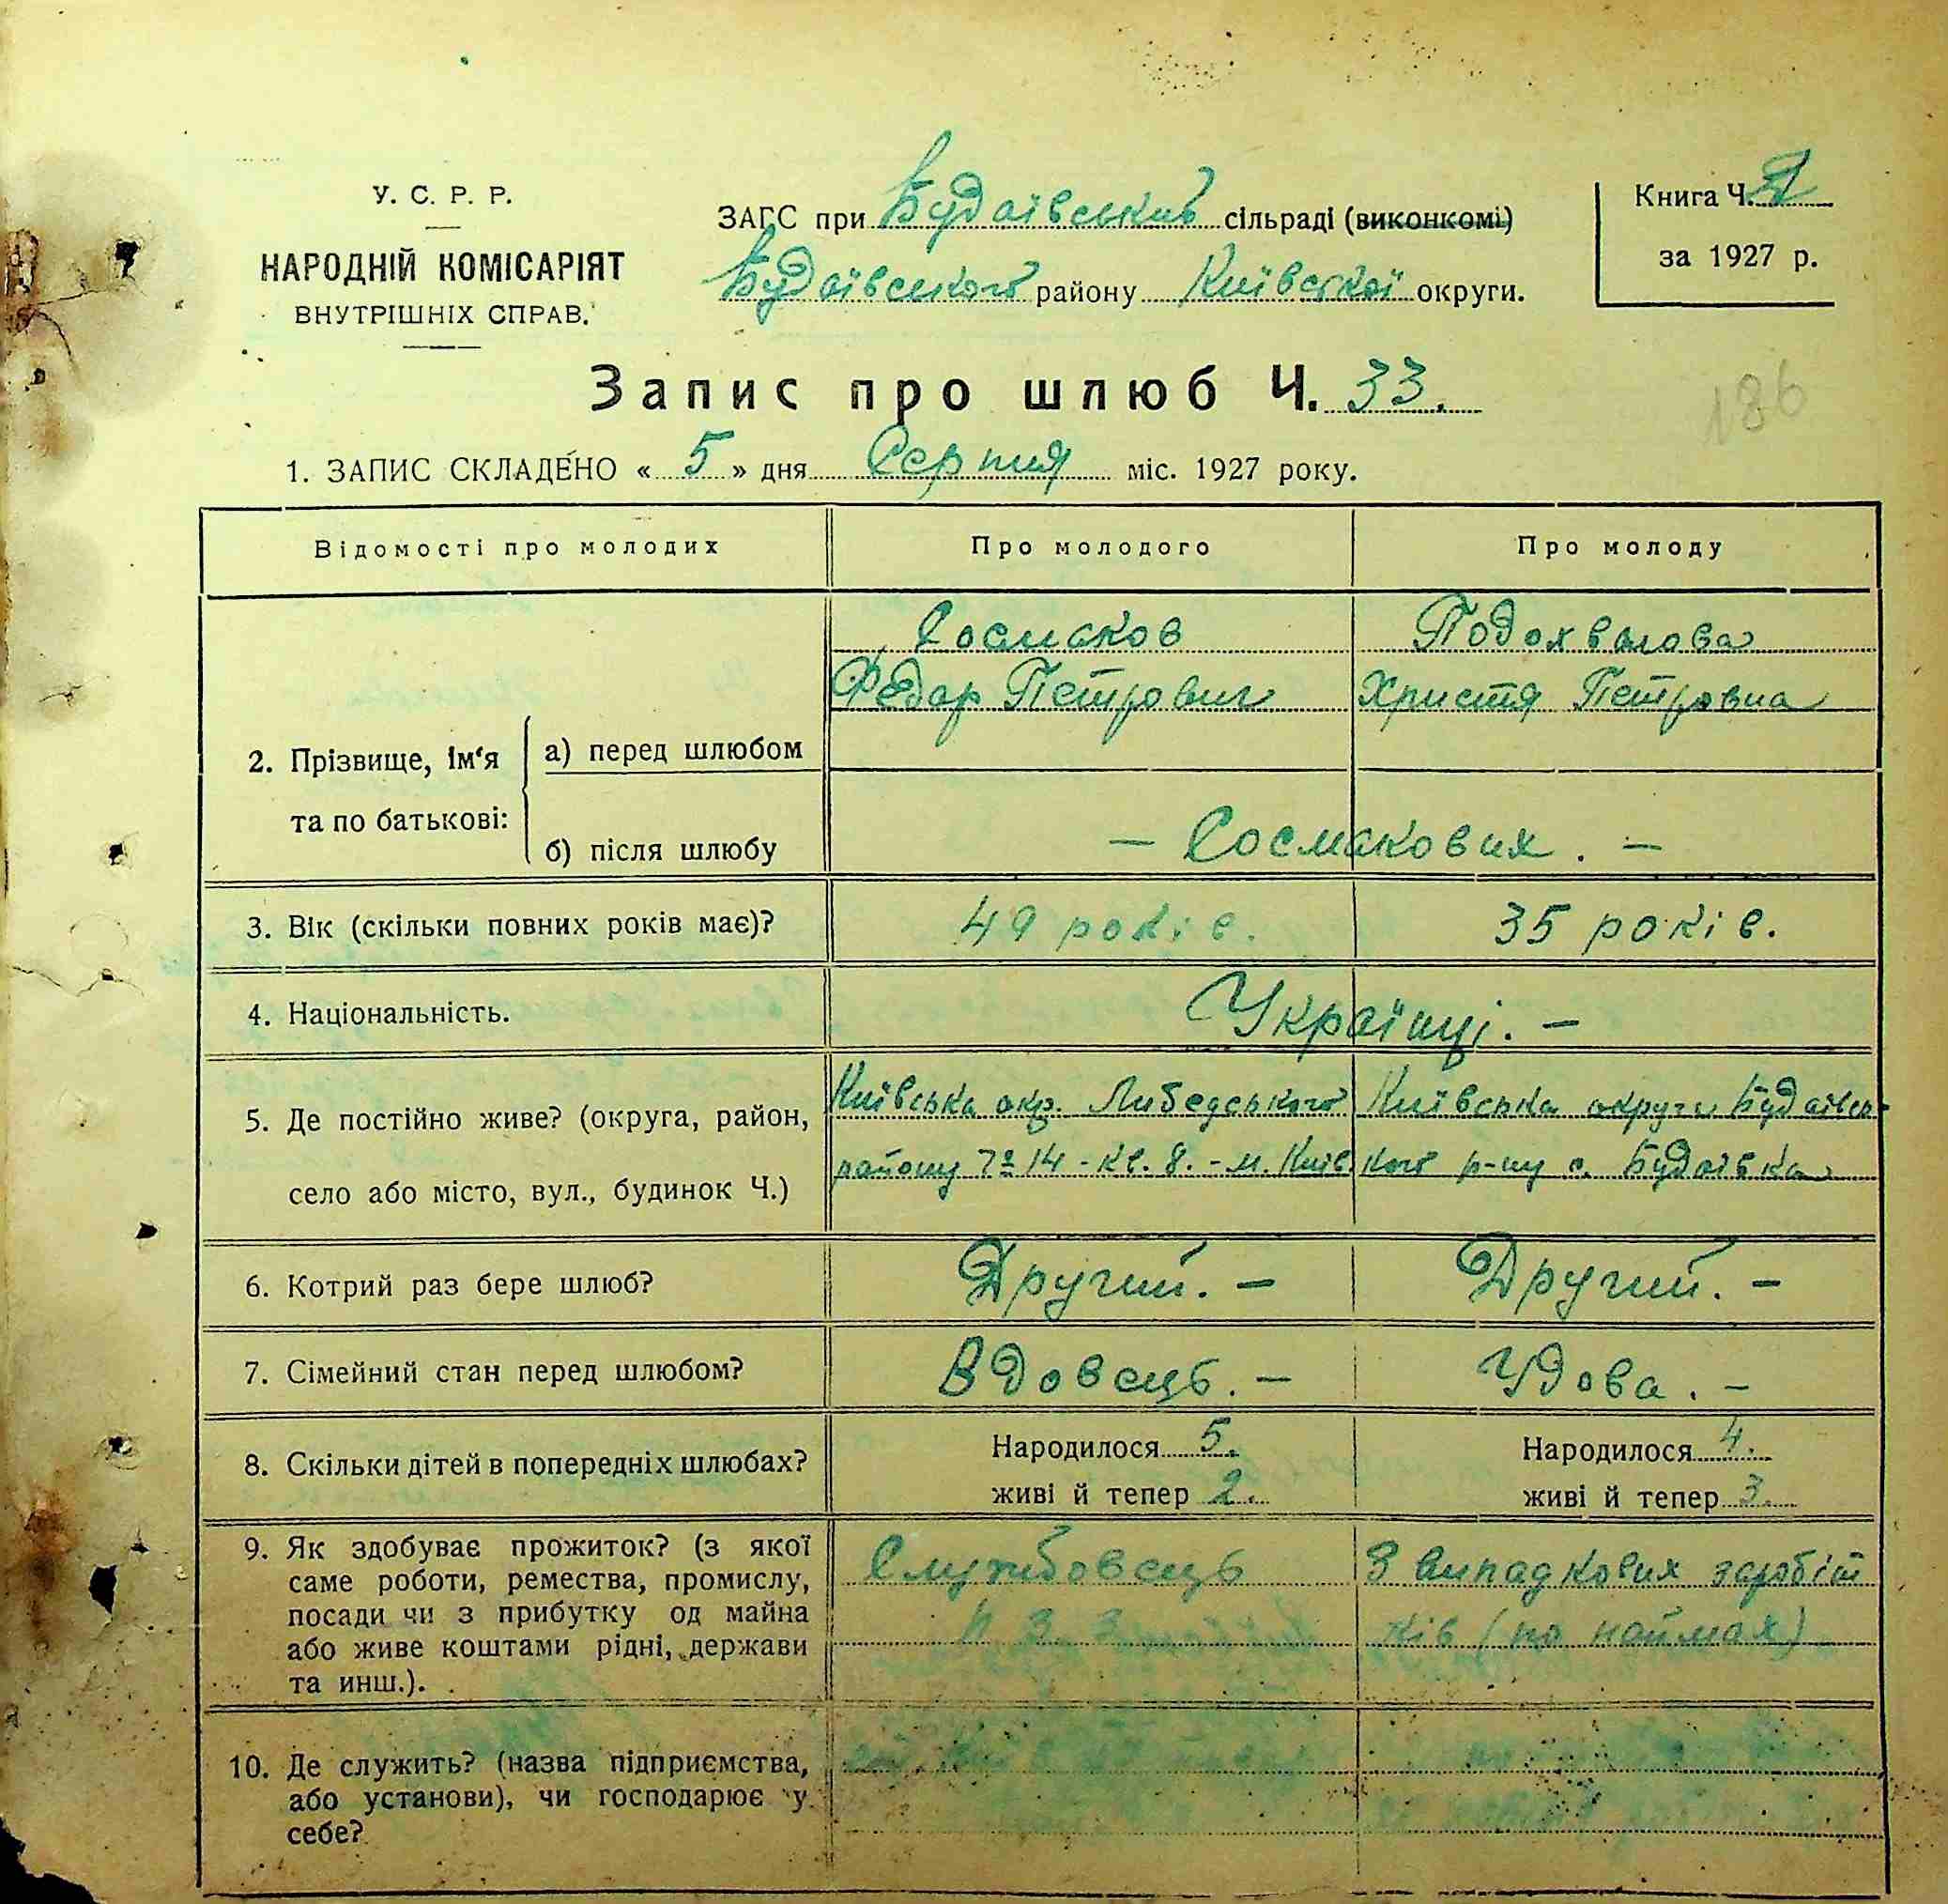 У. С. Р. Р.
НАРОДНІЙ КОМІСАРІЯТ
ВНУТРІШНІХ СПРАВ.
ЗАГС при Будаївський сільраді (виконкомі)
Будаївського району Київської округи.
Книга Ч.
за 1927 р.
186
Запис про шлюб Ч. 33.
1. ЗАПИС СКЛАДЕНО « 5 » дня Серпня міс. 1927 року.
Відомості про молодих
Про молодого
Про молоду
2. Прізвище, ім‘я та по батькові:
а) перед шлюбом
Сосмаков
Федар Петрович
Подохвалова
Христя Петровна
б) після шлюбу
— Сосмакових. —
3. Вік (скільки повних років має)?
49 років.
35 років.
4. Національність.
Українці. —
5. Де постійно живе? (округа, район,
село або місто, вул., будинок Ч.)
Київська окр. Либедського
району № 14 - кв. 8. - м. Київ
Київська округи Будаївсь-
кого р-ну с. Будаівка
6. Котрий раз бере шлюб?
Другий. —
Другий. —
7. Сімейний стан перед шлюбом?
Вдовець. —
Удова. —
8. Скільки дітей в попередніх шлюбах?
Народилося 5.
живі й тепер 2.
Народилося 4.
живі й тепер 3.
9. Як здобуває прожиток? (з якої
саме роботи, ремества, промислу,
посади чи з прибутку од майна
або живе коштами рідні, держави
та инш.).
Службовець
З випадкових заробіт
ків (по наймах)
10. Де служить? (назва підприємства,
або установи), чи господарює у
себе?